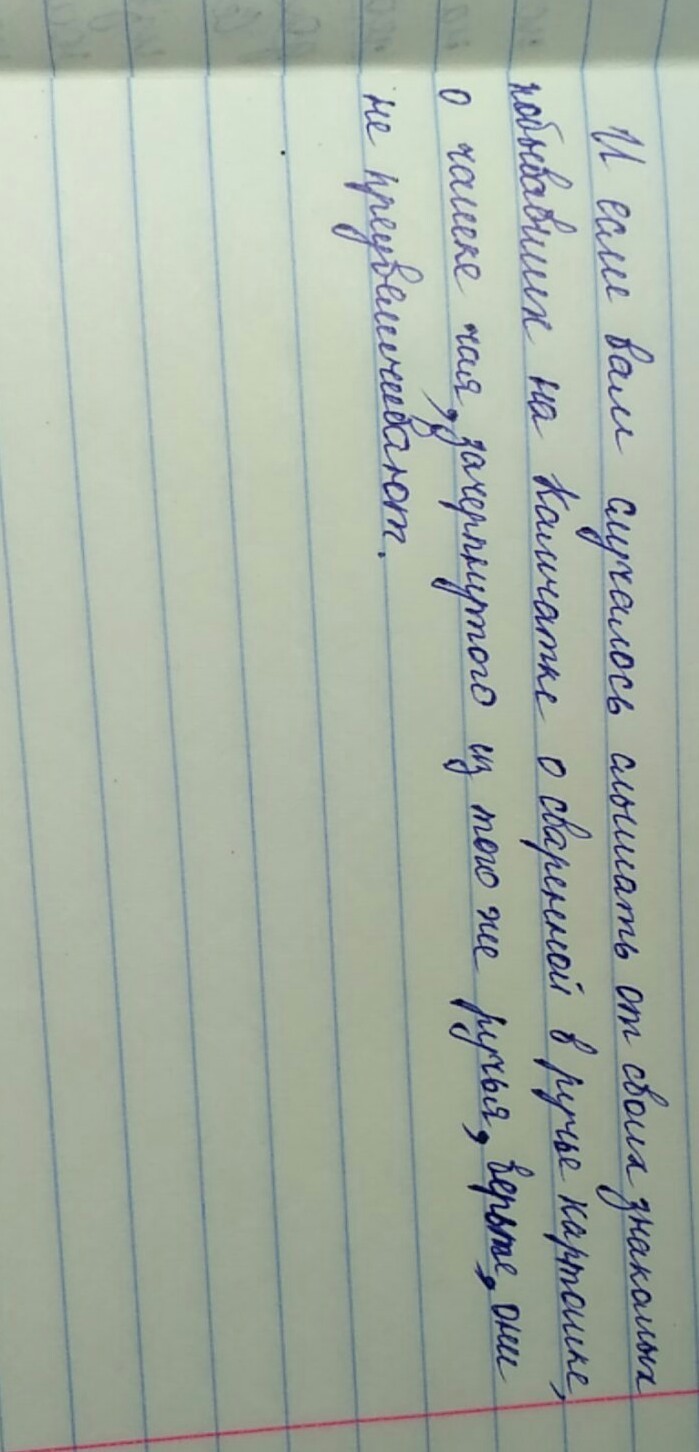 И если вам случалось слышать от своих знакомых
побывавших на Камчатке о сваренной в ручье картошке,
о чашке чая, зачерпнутого из того же ручья, верьте, они
не преувеличивают.